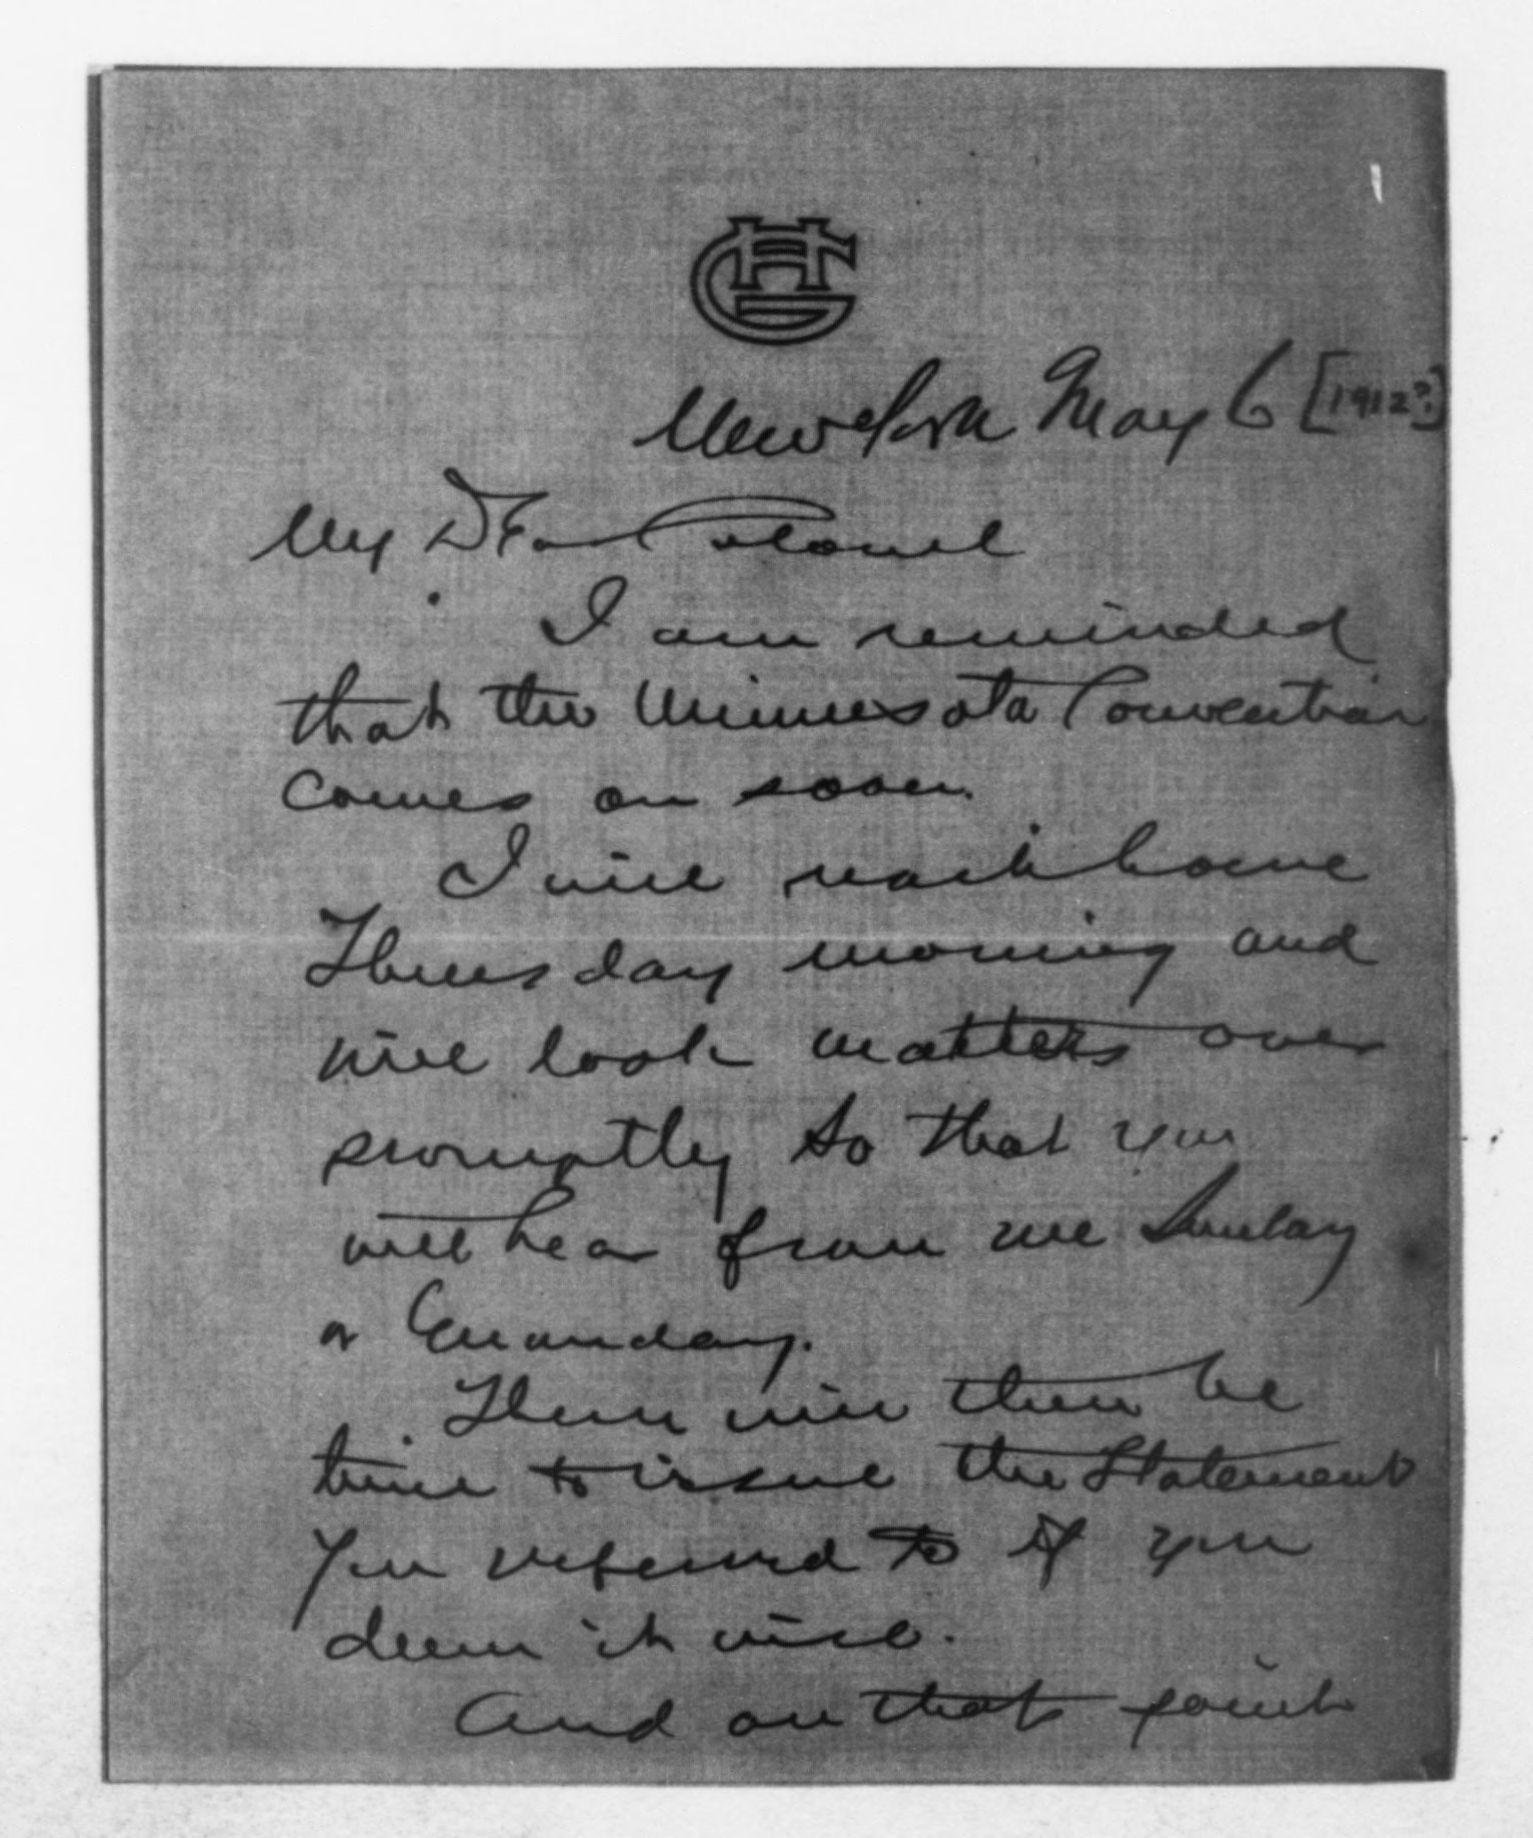 GH
New York May 6 [1912?]
My Dear Colonel
I am reminded
that the Minnesota Convention
comes on soon.
I will reach home
Thursday morning and
will look matters over
promptly so that you
will hear from me Sunday
or Monday.
There will then be
time to issue the Statement
you referred to if you
deem it wise.
And on that point